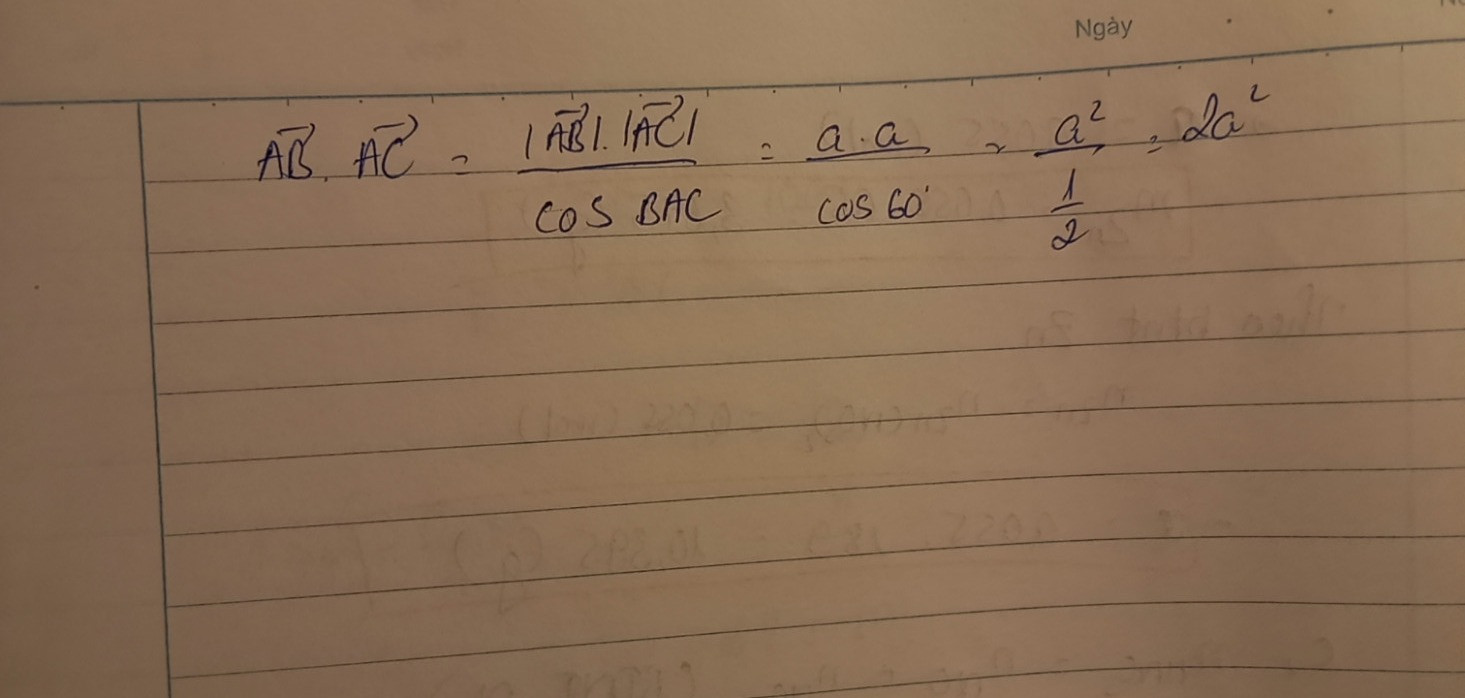 Ngày
$\overrightarrow{AB} . \overrightarrow{AC} = \frac{|\overrightarrow{AB}| . |\overrightarrow{AC}|}{\cos BAC} = \frac{a . a}{\cos 60^\circ} = \frac{a^2}{\frac{1}{2}} = 2a^2$